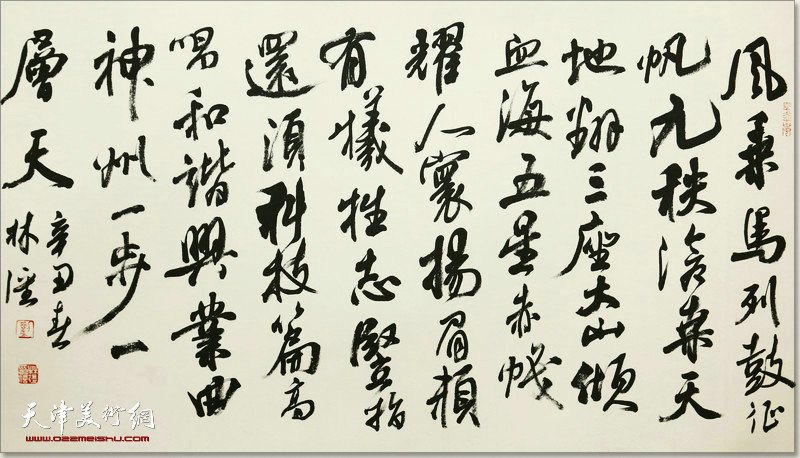 风乘馬列鼓征
帆九秩滄桑天
地翻三座大山傾
血海五星赤幟
耀人寰揚眉頻
有犧牲志豎指
還須科技篇高
唱和諧興業曲
神州一步一
層天
辛丑春
林
天津美術網
www.022meishu.com